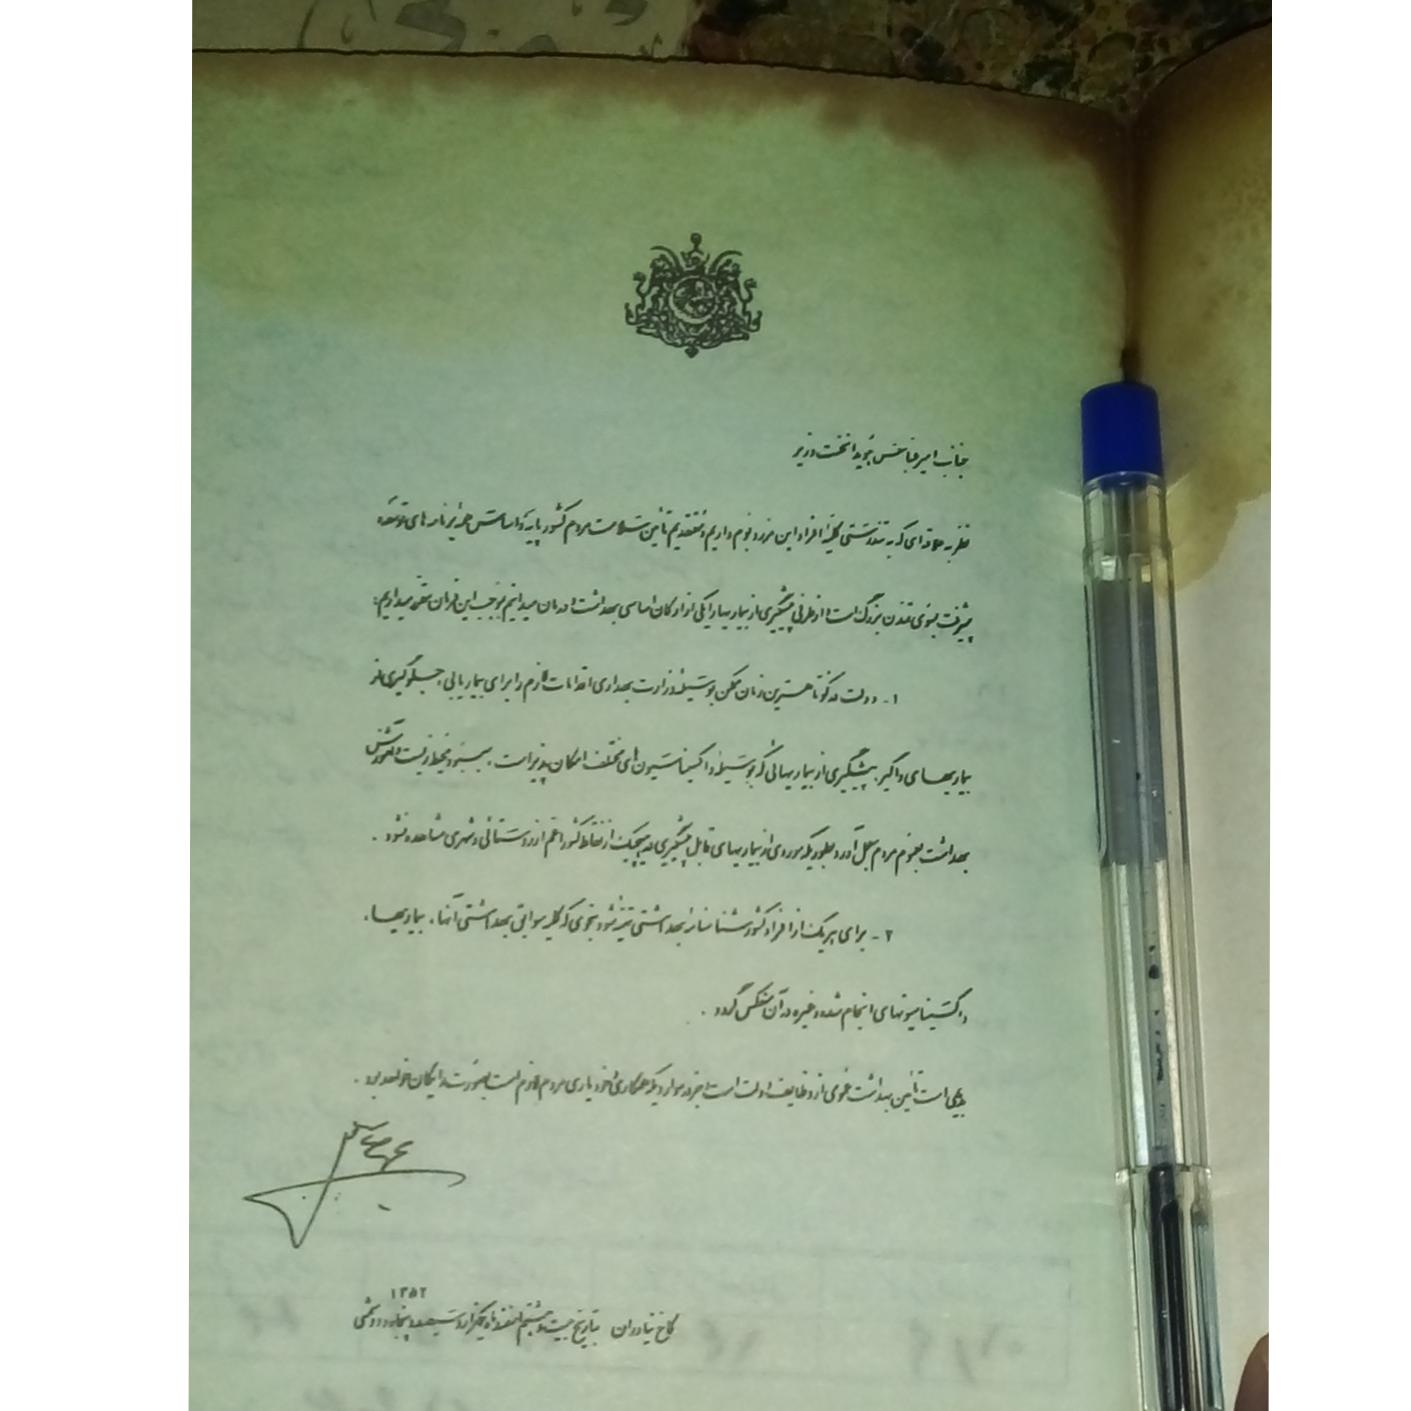 جناب امیرعباس هویدا نخست وزیر
نظر به علاقه ای که به تندرستی کلیه افراد این مرز و بوم داریم و معتقدیم تأمین سلامت مردم کشور پایه و اساس همه برنامه های توسعه
پیشرفت بسوی تمدن بزرگ است و از طرفی پیشگیری از بیماریها را یکی از ارکان اساسی بهداشت و درمان میدانیم بموجب این فرمان مقرر میداریم:
۱- دولت در کوتاهترین زمان ممکن بوسیله وزارت بهداری اقدامات لازم را برای بیماریابی، جلوگیری از
بیماریهای واگیر، پیشگیری از بیماریهائی که بوسیله واکسیناسیون های مختلف امکان پذیر است، بهبود محیط زیست و آموزش
بهداشت بعموم مردم بعمل آورد بطوریکه موردی از بیماریهای قابل پیشگیری در هیچیک از نقاط کشور اعم از روستائی و شهری مشاهده نشود.
۲- برای هر یک از افراد کشور شناسنامه بهداشتی تهیه شود بنحوی که کلیه سوابق بهداشتی آنها، بیماریها،
واکسیناسیونهای انجام شده و غیره در آن منعکس گردد.
بدیهی است تأمین بهداشت عمومی از وظایف دولت است و جز در مواردیکه همکاری و خودیاری مردم لازم است بصورت رایگان خواهد بود.
۱۳۵۲
کاخ نیاوران بتاریخ بیست و هشتم اسفند ماه یکهزار و سیصد و پنجاه و دو شمسی